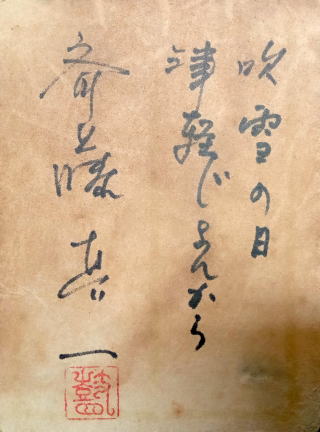 吹雪の日
津軽じょんから
斉藤真一